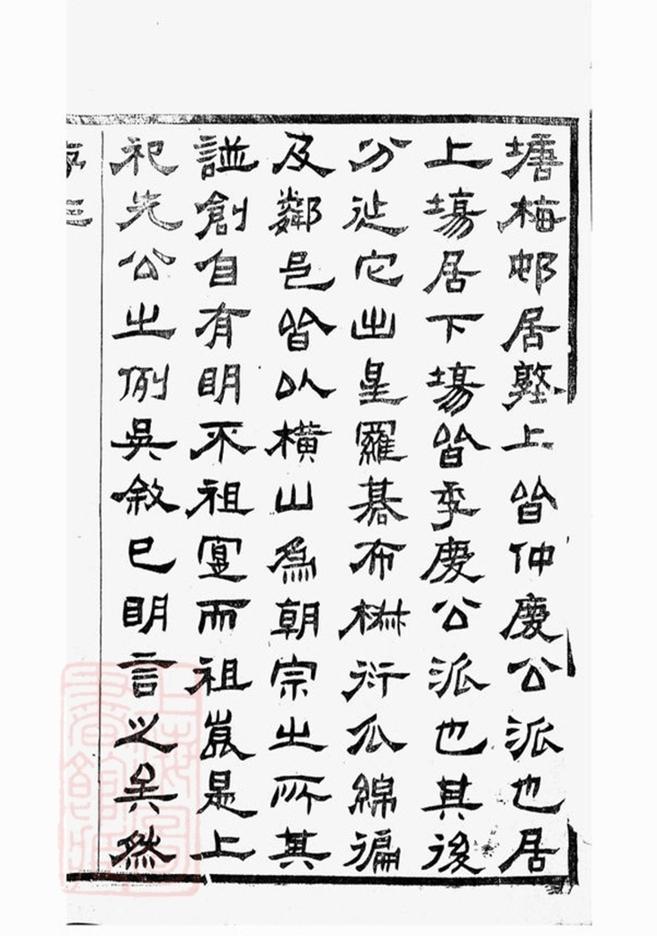 塘梅邨居墪上皆仲慶公派也居
上塲居下塲皆季慶公派也其後
分徙它出星羅棊布椒衍瓜綿徧
及鄰邑皆以橫山爲朝宗之所其
譜創自有明不祖寔而祖崑是上
祀先公之例吳敘已明言之矣然
序三